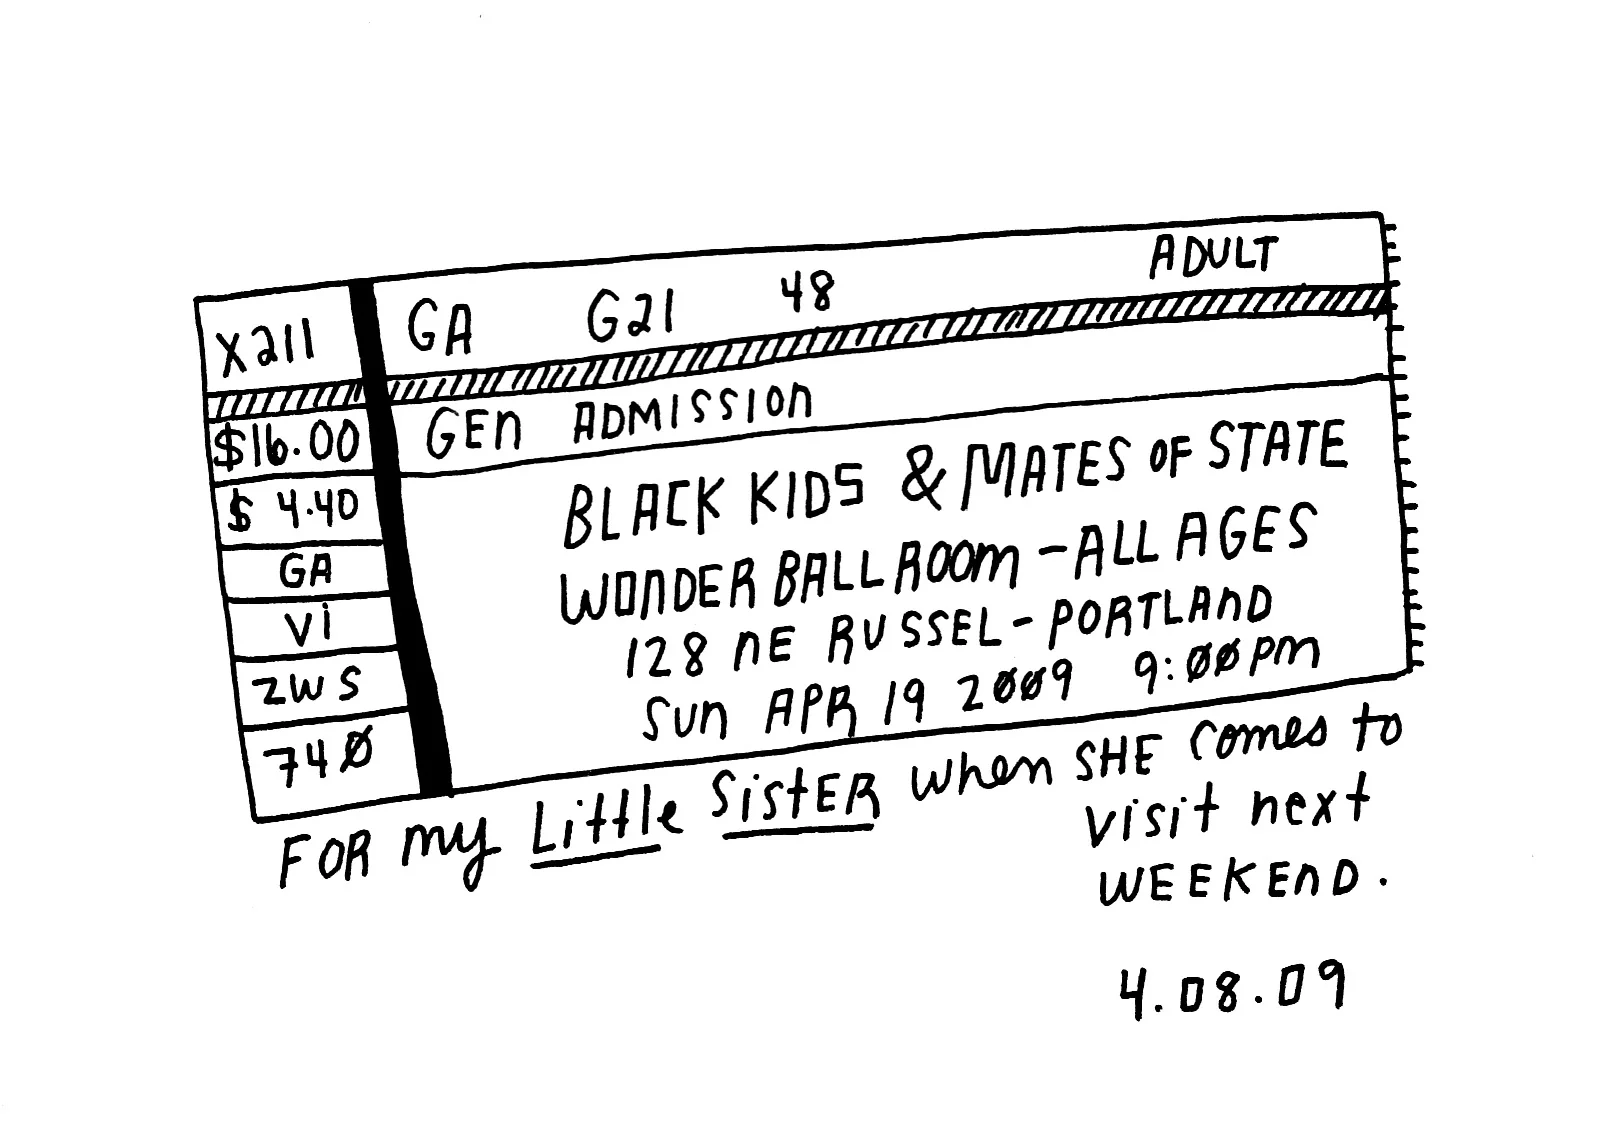 X211
$16.00
$ 4.40
GA
Vi
ZWS
740
GA G21 48 ADULT
GEN ADMISSION
BLACK KIDS & MATES OF STATE
WONDER BALLROOM - ALL AGES
128 NE RUSSEL - PORTLAND
SUN APR 19 2009 9:00PM
FOR my Little SiStER when SHE comes to
visit next
WEEKEND.
4.08.09